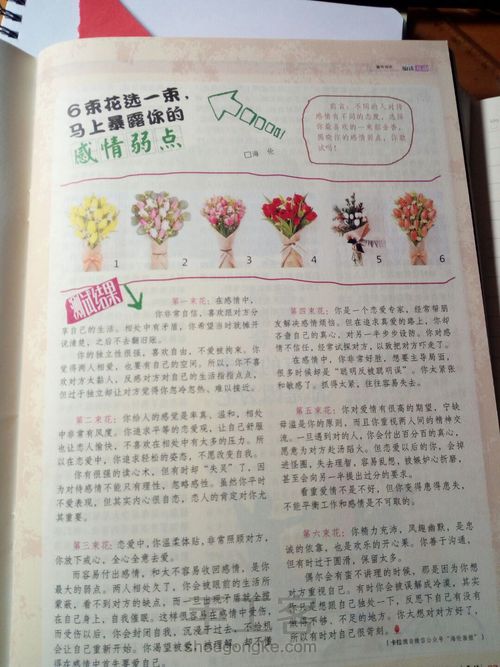 6束花选一束，
马上暴露你的
感情弱点
□海 伦
前言：不同的人对待
感情有不同的态度，选择
你最喜欢的一束郁金香，
揭晓你的感情弱点，你敢
试吗！
1 2 3 4 5 6
测试结果
第一束花：在感情中，
你非常自信，喜欢跟对方分
享自己的生活。相处中有矛盾，你希望当时就摊开
说清楚，之后不去翻旧账。
你的独立性很强，喜欢自由，不爱被拘束。你
觉得两人相爱，也要有自己的空间。所以，你不喜
欢对方太黏人，反感对方对自己的生活指指点点，
但过于独立却让对方觉得你忽冷忽热、难以接近。
第二束花：你给人的感觉是率真、温和，相处
中非常有风度。你追求平等的恋爱观，让自己舒服
也让恋人愉快，不喜欢在相处中有太多的压力。所
以在恋爱中，你追求轻松的姿态，不愿改变自我。
你有很强的读心术，但有时却“失灵”了，因
为对待感情不能只有理性，忽略感性。虽然你平时
不爱表现，但其实内心很自恋，恋人的肯定对你尤
其重要。
第三束花：恋爱中，你温柔体贴，非常照顾对方，
你放下戒心，全心全意去爱。
而容易付出感情，和太不容易收回感情，是你
最大的弱点。两人相处久了，你会被眼前的生活所
蒙蔽，看不到对方的缺点，而一旦出现矛盾就全揽
在自己身上，自我催眠。这样很容易在感情中受伤，
而受伤以后，你会封闭自我，沉浸于过去，不给机
会让自己重新开始。你渴望被爱、被理解，却不懂
得在感情中首先要爱自己。
第四束花：你是一个恋爱专家，经常帮朋
友解决感情烦恼。但在追求真爱的路上，你却
吝啬自己的真心，对另一半步步设防。你对感
情不信任，经常试探对方，以致把对方吓走了。
在感情中，你非常好胜，想要主导局面，
很多时候却是“聪明反被聪明误”。你太紧张
和敏感了。抓得太紧，往往容易失去。
第五束花：你对爱情有很高的期望，宁缺
毋滥是你的原则，而且你重视两人间的精神交
流。一旦遇到对的人，你会付出百分百的真心，
愿意为对方赴汤蹈火。但恋爱以后的你，会掉
进怪圈，失去理智，容易乱想，被嫉妒心折磨，
甚至会向另一半提出过分的要求。
看重爱情不是不好，但你变得患得患失，
不能平衡工作和感情是不可取的。
第六束花：你精力充沛，风趣幽默，是忠
诚的依靠，也是欢乐的开心果。你善于沟通，
但有时过于圆滑，保留太多。
偶尔会有蛮不讲理的时候，那是因为你想
对方重视自己。有时你会被误解成冷漠，其实
你只是想跟自己独处一下，反思下自己有没有
做得不够，不足的地方。你大想对对方好了，
所以有时对自己很苛刻。